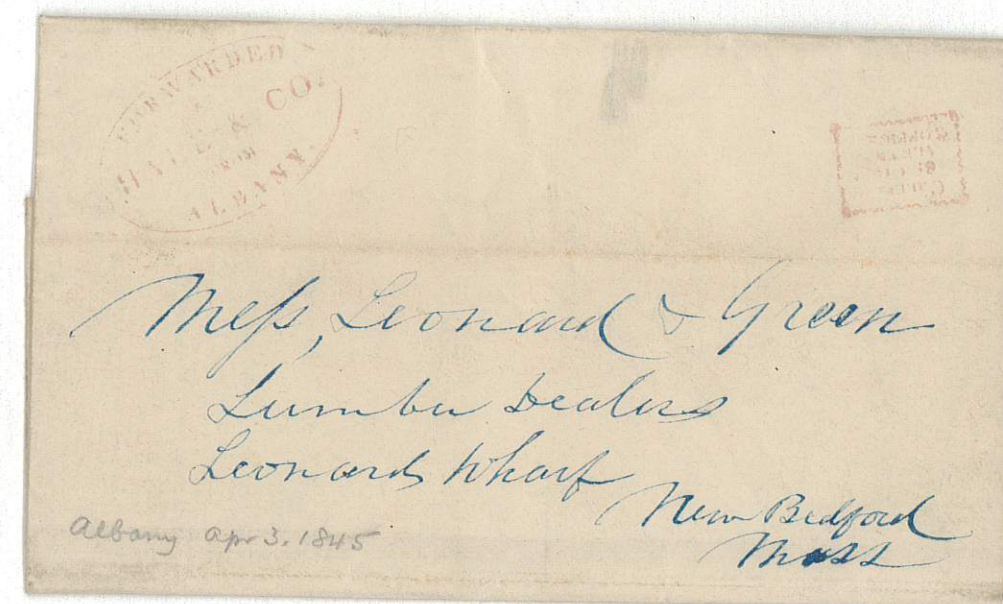 FORWARDED
HALE & CO.
FROM
ALBANY.
Mess, Leonard & Green
Lumber Dealers
Leonards Wharf
New Bedford
Mass
Albany Apr 3. 1845